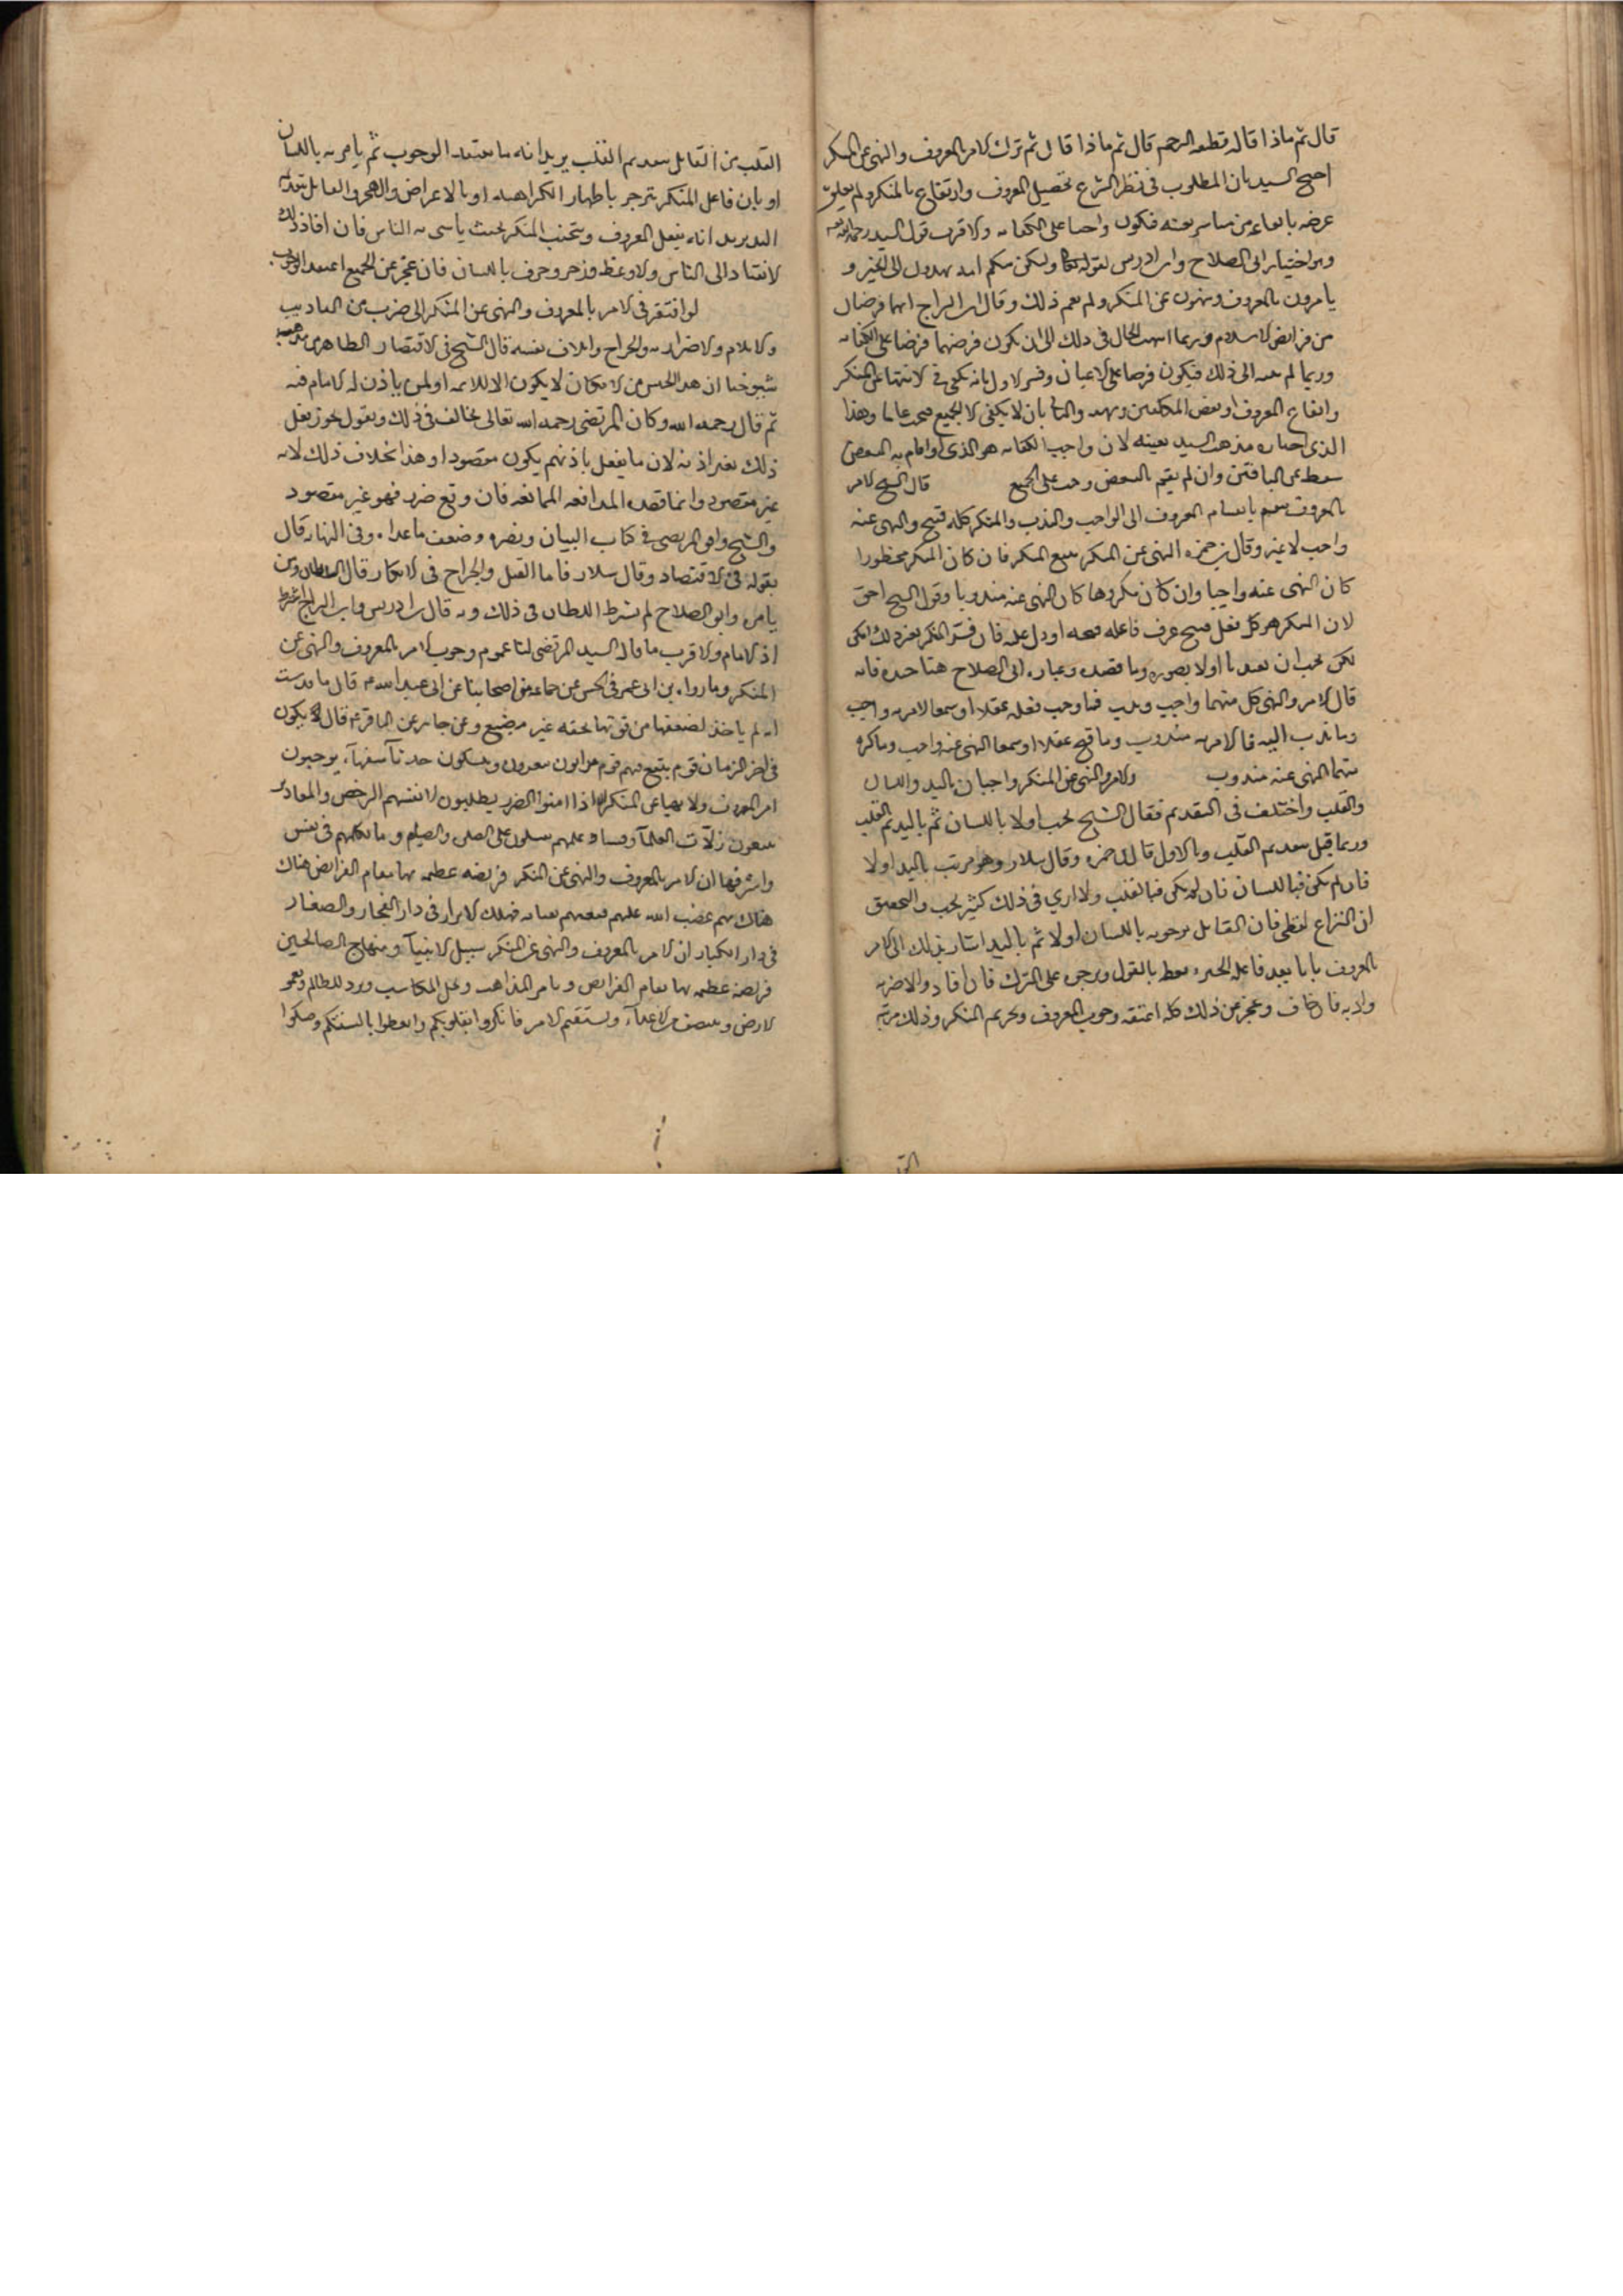 قال ثم ماذا قال قطعه الرحم قال ثم ماذا قال ثم ترك الامر بالمعروف والنهي عن المنكر
احتج السيد بان المطلوب في نظر الشرع تحصيل المعروف وارتفاع المنكر ولم يعلق
غرضه بايقاعه من مباشر بعينه فيكون واجبا على الكفايه والاقرب قول السيد رحمه الله
وهو اختيار ابي الصلاح وابن ادريس لقوله تعالى ولتكن منكم امه يدعون الى الخير و
يامرون بالمعروف وينهون عن المنكر ولم يعم ذلك وقال ابن البراج انهما فرضان
من فرائض الاسلام وربما انتهت الحال في ذلك الى ان يكون فرضهما فرضا على الكفايه
وربما لم ينته الى ذلك فيكون فرضا على الاعيان وفسر الاول بانه يكفي في الانتهاء عن المنكر
وايقاع المعروف بعض المكلفين والثاني بان لا يكفي الا الجميع وهذا
الذي اختاره مذهب السيد بعينه لان واجب الكفايه هو الذي اذا قام به البعض
سقط عن الباقين وان لم يقم به البعض وجب على الجميع قال الشيخ الامر
بالمعروف ينقسم بانقسام المعروف الى الواجب والندب والمنكر كله قبيح والنهي عنه
واجب لا غير وقال ابن حمزه النهي عن المنكر يتبع المنكر فان كان المنكر محظورا
كان النهي عنه واجبا وان كان مكروها كان النهي عنه مندوبا وقول الشيخ احق
لان المنكر هو كل فعل قبيح عرف فاعله قبحه او دل عليه فان فسر المنكر بغير ذلك امكن
لكن يجب ان يفيدنا اولا تصوره وما قصده وعباره ابي الصلاح هنا جيده فانه
قال الامر والنهي كل منهما واجب وندب فما وجب فعله عقلا او سمعا الامر به واجب
وما ندب اليه فالامر به مندوب وما قبح عقلا او سمعا النهي عنه واجب وما كره
منهما النهي عنه مندوب والامر والنهي عن المنكر واجبان باليد واللسان
والقلب واختلف في التقديم فقال الشيخ يجب اولا باللسان ثم باليد ثم القلب
وربما قيل بتقديم القلب وبالاول قال ابن حمزه وقال سلار وهو مرتب باليد اولا
فان لم يكن فباللسان فان لم يكن فبالقلب ولا ارى في ذلك كثير بحث والتحقيق
ان النزاع لفظي فان القائل بوجوبه باللسان اولا ثم باليد اشار بذلك الى الامر
بالمعروف بانه يعد فاعله الخير ويعظ بالقول ويزجره على الترك فان افاد والا ضربه
وادبه فان خاف وعجز عن ذلك كله اعتقد وجوب المعروف وتحريم المنكر وذلك مرتبه
القلب ومن القائل بتقديم القلب يريد انه ما يعتقد الوجوب ثم يامر به باللسان
او بان فاعل المنكر ينزجر باظهار الكراهيه او بالاعراض والهجر والقائل بتقديم
اليد يريد انه يفعل المعروف ويجتنب المنكر بحيث يتاسى به الناس فان افاد ذلك
لانقياد الى الناس والا وعظ وزجر وخوف باللسان فان عجز عن الجميع اعتقد الوجوب
لو افتقر في الامر بالمعروف والنهي عن المنكر الى ضرب من التاديب
والايلام والاضرار به والجراح واتلاف نفسه قال الشيخ في الاقتصاد الظاهر من مذهب
شيوخنا ان هذا الجنس من الانكار لا يكون الا للائمه او لمن ياذن له الامام فيه
ثم قال رحمه الله وكان المرتضى رحمه الله تعالى يخالف في ذلك ويقول يجوز فعل
ذلك بغير اذنه لان ما يفعل باذنهم يكون مقصودا وهذا بخلاف ذلك لانه
غير مقصود وانما قصده المدافعه والممانعه فان وقع ضرر فهو غير مقصود
والشيخ وافق المرتضى في كتاب التبيان ونصره وضعف ما عداه وفي النهايه قال
بقوله في الاقتصاد وقال سلار فاما القتل والجراح في الانكار فالى السلطان ومن
يامره وابو الصلاح لم يشترط السلطان في ذلك وبه قال ابن ادريس وابن البراج اشترط
اذن الامام والاقرب ما قاله السيد المرتضى لنا عموم وجوب الامر بالمعروف والنهي عن
المنكر وما رواه ابن ابي عمير في الحسن عن جماعه من اصحابنا عن ابي عبد الله ع قال ما قدست
امه لم ياخذ لضعيفها من قويها بحقه غير مضيع وعن جابر عن الباقر ع قال يكون
في اخر الزمان قوم يتبع فيهم قوم مراؤون يتقرؤون ويتنسكون حدثاء سفهاء لا يوجبون
امر المعروف ولا نهيا عن المنكر الا اذا امنوا الضرر يطلبون لانفسهم الرخص والمعاذير
يتبعون زلات العلماء وفساد علمهم يقبلون على الصلوه والصيام وما يكلمهم في نفس
واشرفها ان الامر بالمعروف والنهي عن المنكر فريضه عظيمه بها تقام الفرائض هناك
هناك يتم غضب الله عليهم فيعمهم بعقابه فيهلك الابرار في دار الفجار والصغار
في دار الكبار ان الامر بالمعروف والنهي عن المنكر سبيل الانبياء ومنهاج الصالحين
فريضه عظيمه بها تقام الفرائض وتامن المذاهب وتحل المكاسب وترد المظالم وتعمر
الارض وينتصف من الاعداء ويستقيم الامر فانكروا بقلوبكم والفظوا بالسنتكم وصكوا